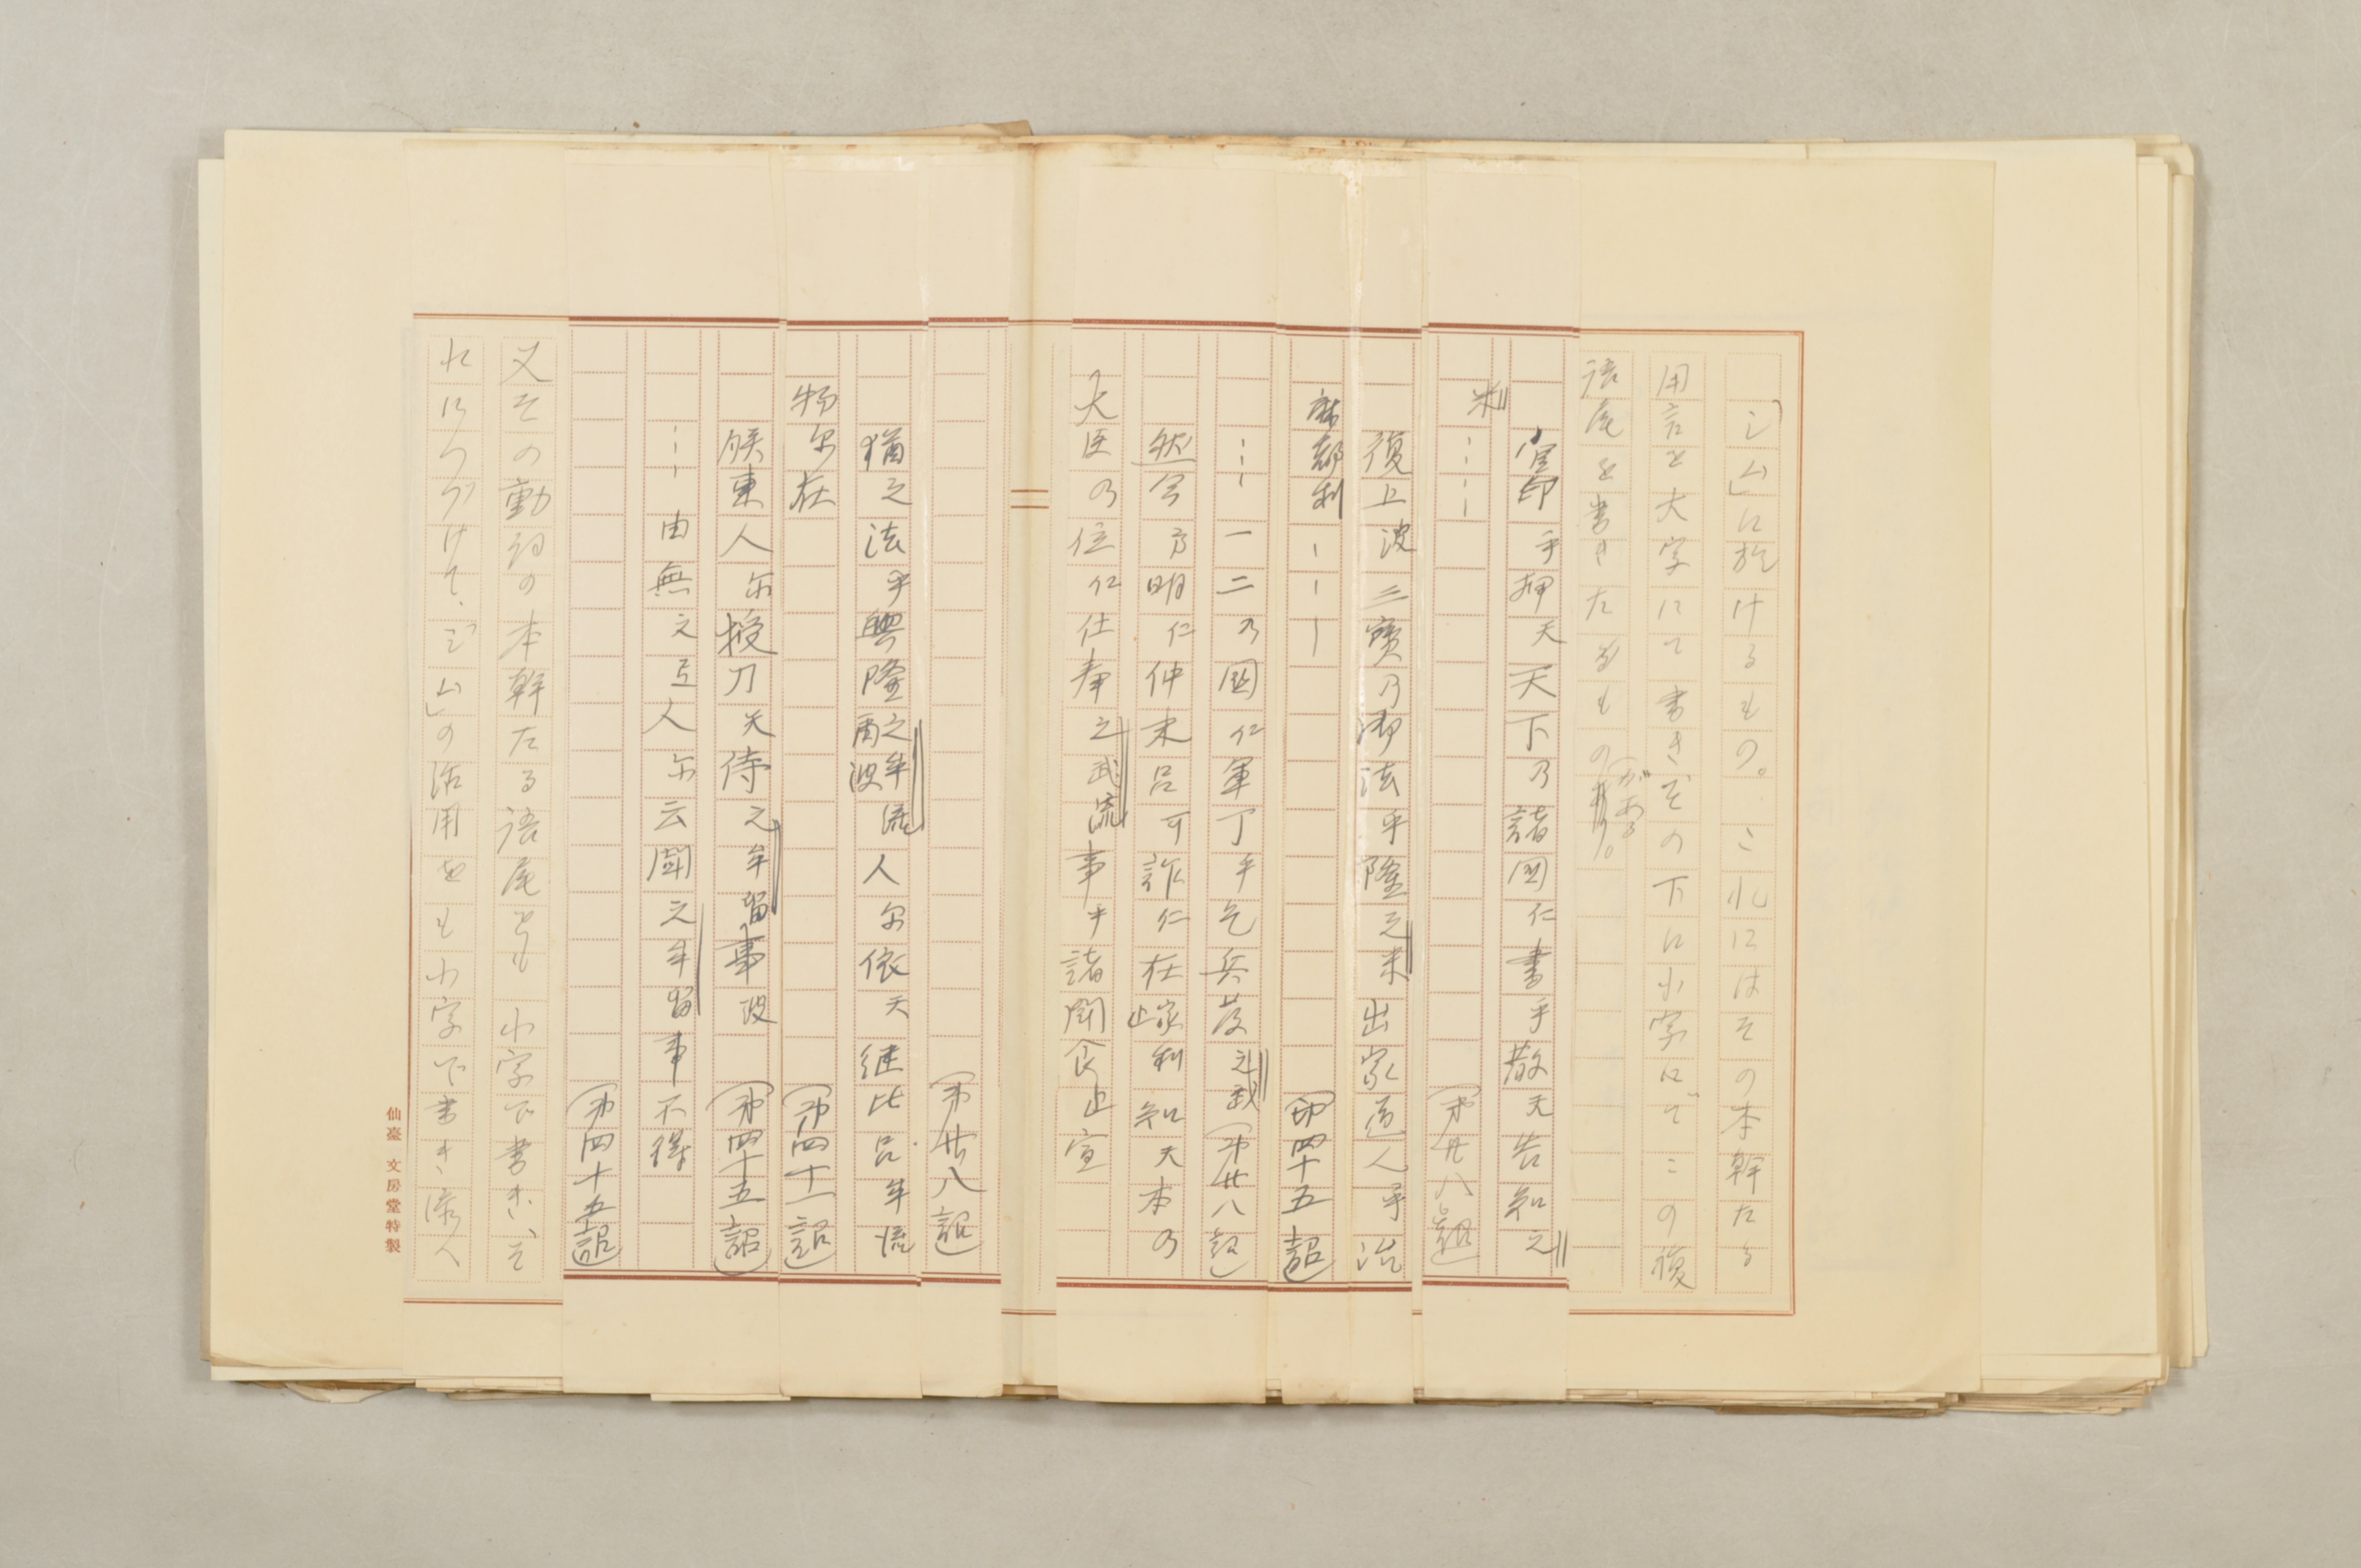 「シム」に於けるもの。これにはその本幹たる
用言を大字にて書きその下に小字にてこの複
語尾を書きたるものがある。
官印乎押天天下乃諸国仁書乎散天告知之
米………(第廿八詔)
復上波三寳乃御法乎隆之米出家道人乎治
麻都利………(第四十五詔)
……一二乃国仁軍丁乎乞兵発之武(第廿八詔)
然今方明仁仲末呂可詐仁在家利止知天本乃
大臣乃位仁仕奉之武流事乎諸聞食止宣
(第廿八詔)
猶之法乎興隆之牟流爾波人尓依天継比呂牟流
物尓在(第四十一詔)
朕東人尓授刀天侍之牟留事波(第四十五詔)
……由無文亙人尓云聞之牟留事不得
(第四十五詔)
又その動詞の本幹たる語尾とも小字で書き、そ
れにつゞけて、「シム」の活用をも小字で書き添へ
仙臺 文房堂特製